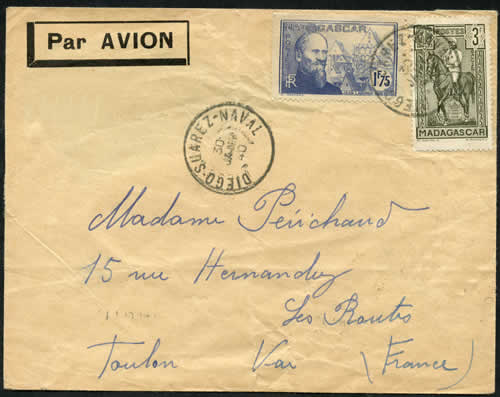 Par AVION
MADAGASCAR
RF
1F75
POSTES
3F
MADAGASCAR
DIEGO-SUAREZ-NAVAL
30
JANV
40
Madame Périchaud
15 rue Hernandez
Les Routes
Toulon Var (France)